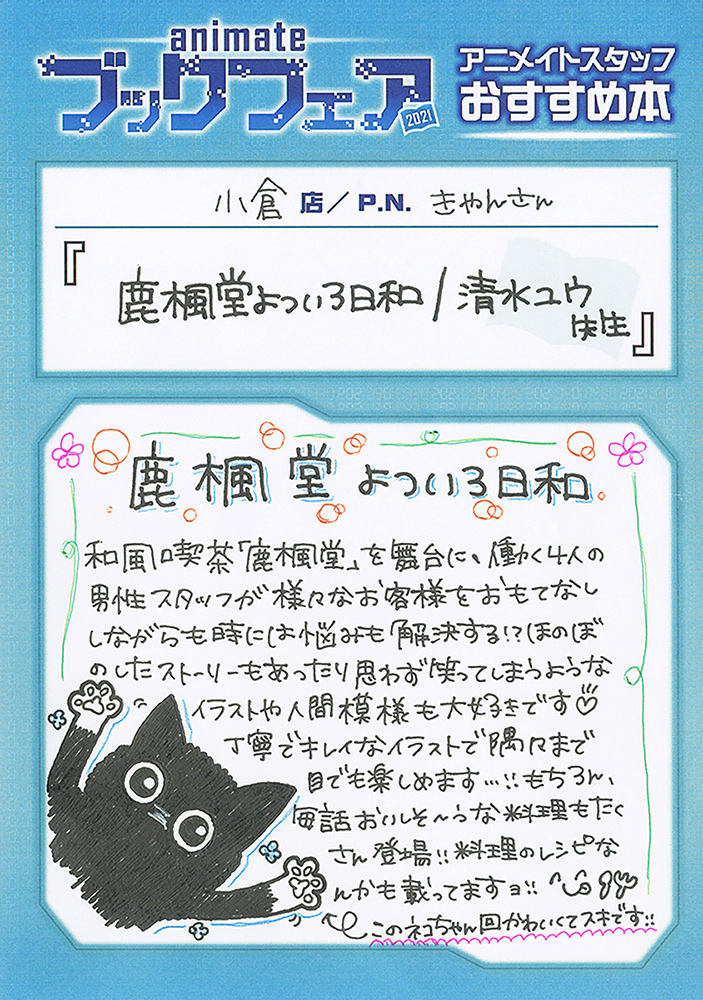 animate
ブックフェア
2021
アニメイトスタッフ
おすすめ本
小倉 店／P.N. きゃんさん
『
鹿楓堂よついろ日和/清水ユウ
先生
』
鹿楓堂よついろ日和
和風喫茶「鹿楓堂」を舞台に、働く4人の
男性スタッフが様々なお客様をおもてなし
しながらも時にはお悩みも解決する!?ほのぼ
のしたストーリーもあったり思わず笑ってしまうような
イラストや人間模様も大好きです♡
丁寧でキレイなイラストで隅々まで
目でも楽しめます…!!もちろん、
毎話おいしそ〜うな料理もたく
さん登場!!料理のレシピな
んかも載ってますヨ!!
このネコちゃん回かわいくてスキです!!